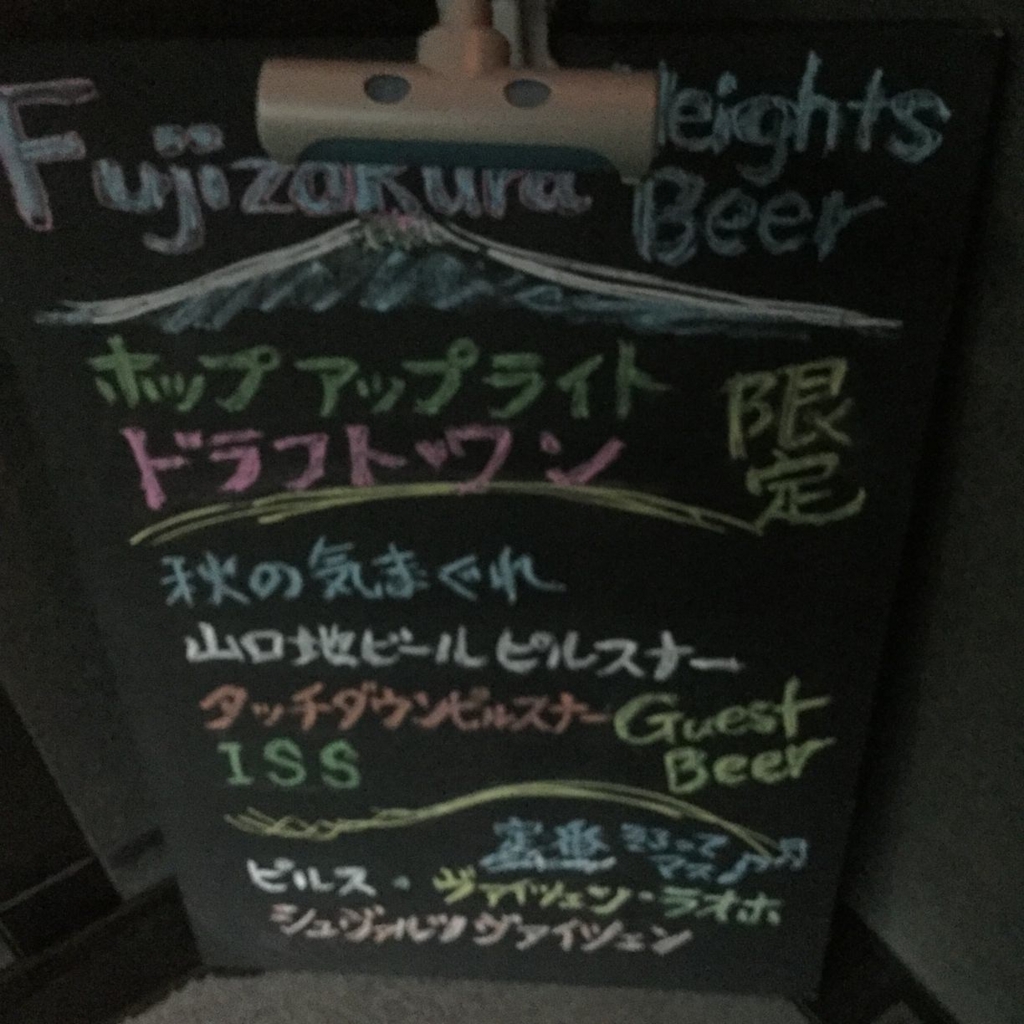 Fujizakura Heights
Beer
ホップアップライト
ドラフトワン
限定
秋の気まぐれ
山口地ビールピルスナー
タッチダウンピルスナー
ISS
Guest
Beer
定番 そろって
マス♪♪♪
ピルス・ヴァイツェン・ラオホ
シュヴァルツヴァイツェン